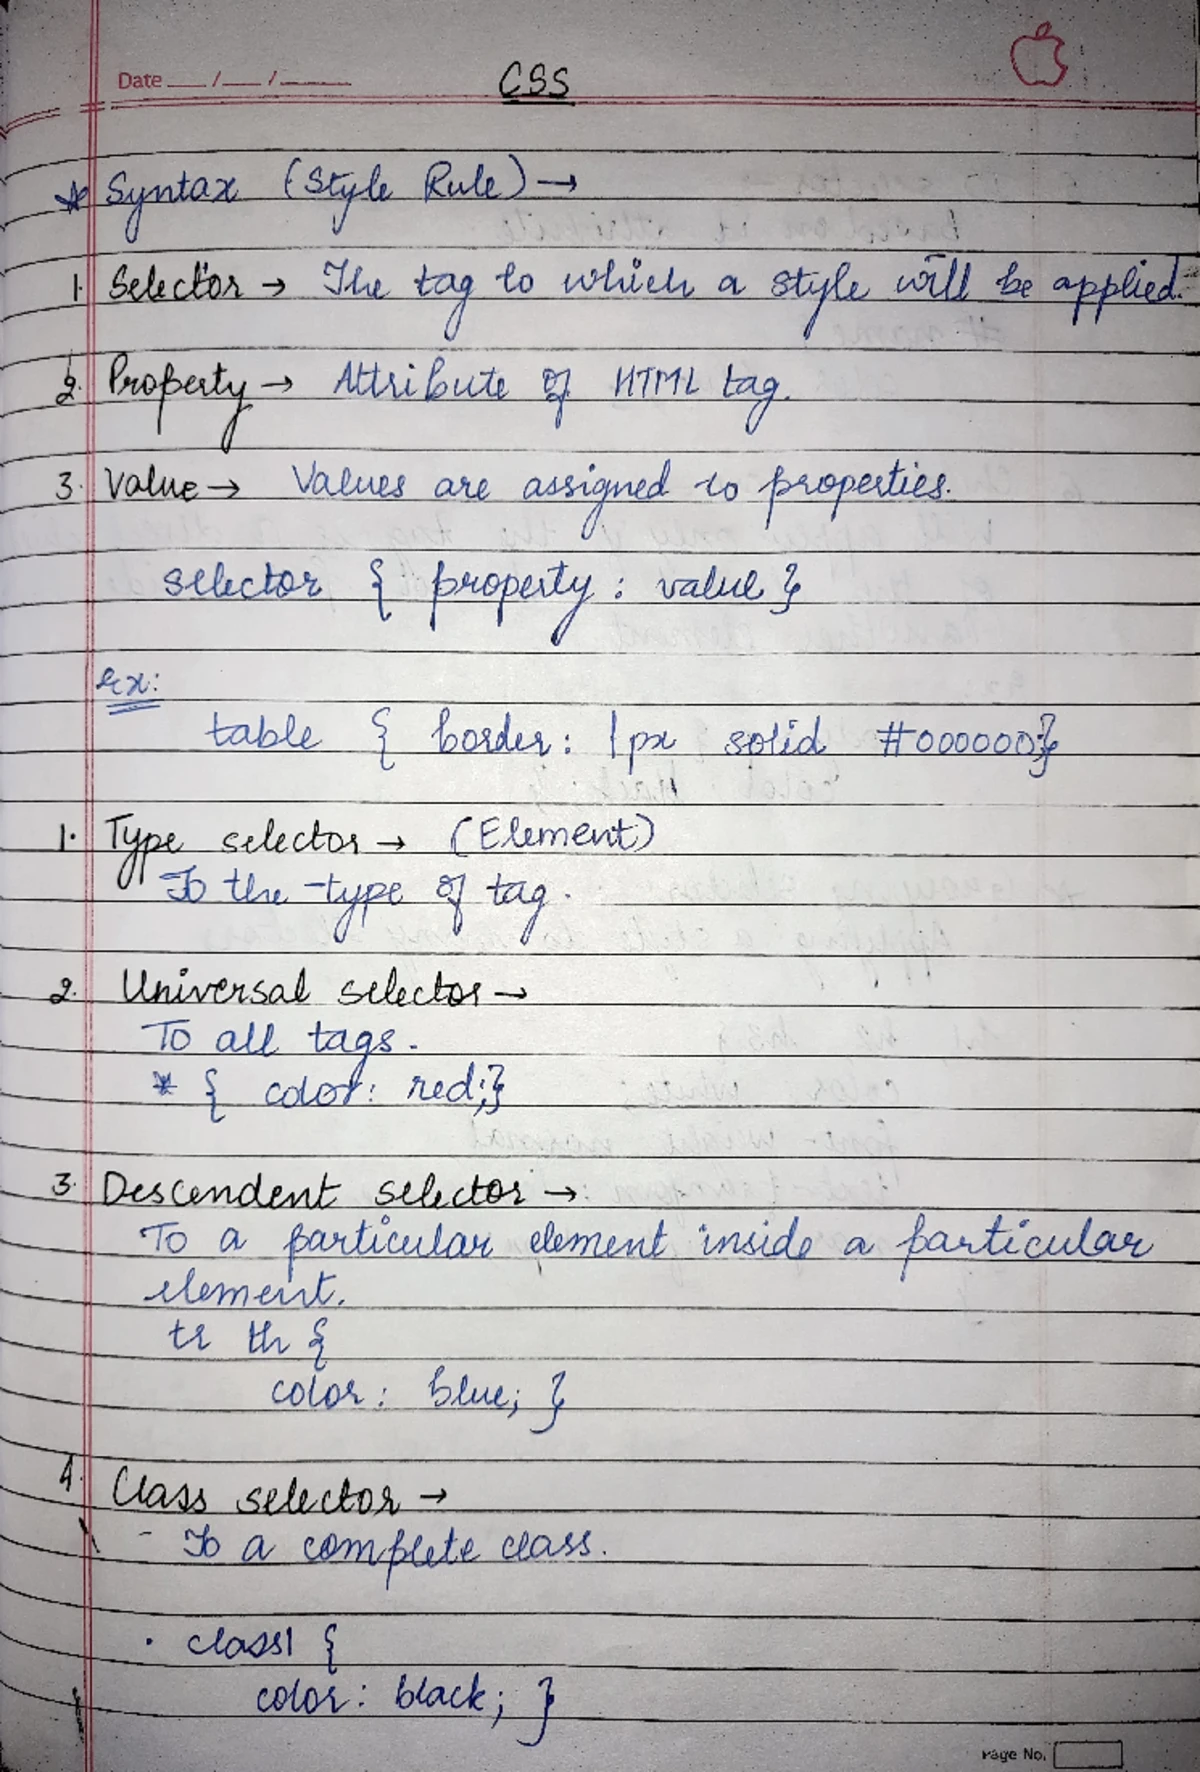 Date __/__/____
CSS
* Syntax (Style Rule) →
1. Selector → The tag to which a style will be applied.
2. Property → Attribute of HTML tag.
3. Value → Values are assigned to properties.
selector { property : value }
ex:
table { border: 1px solid #000000;}
1. Type selector → (Element)
To the type of tag.
2. Universal selector →
To all tags.
* { color: red;}
3. Descendent selector →
To a particular element inside a particular
element.
tr th {
color: blue; }
4. Class selector →
- To a complete class.
. class1 {
color: black; }
Page No.